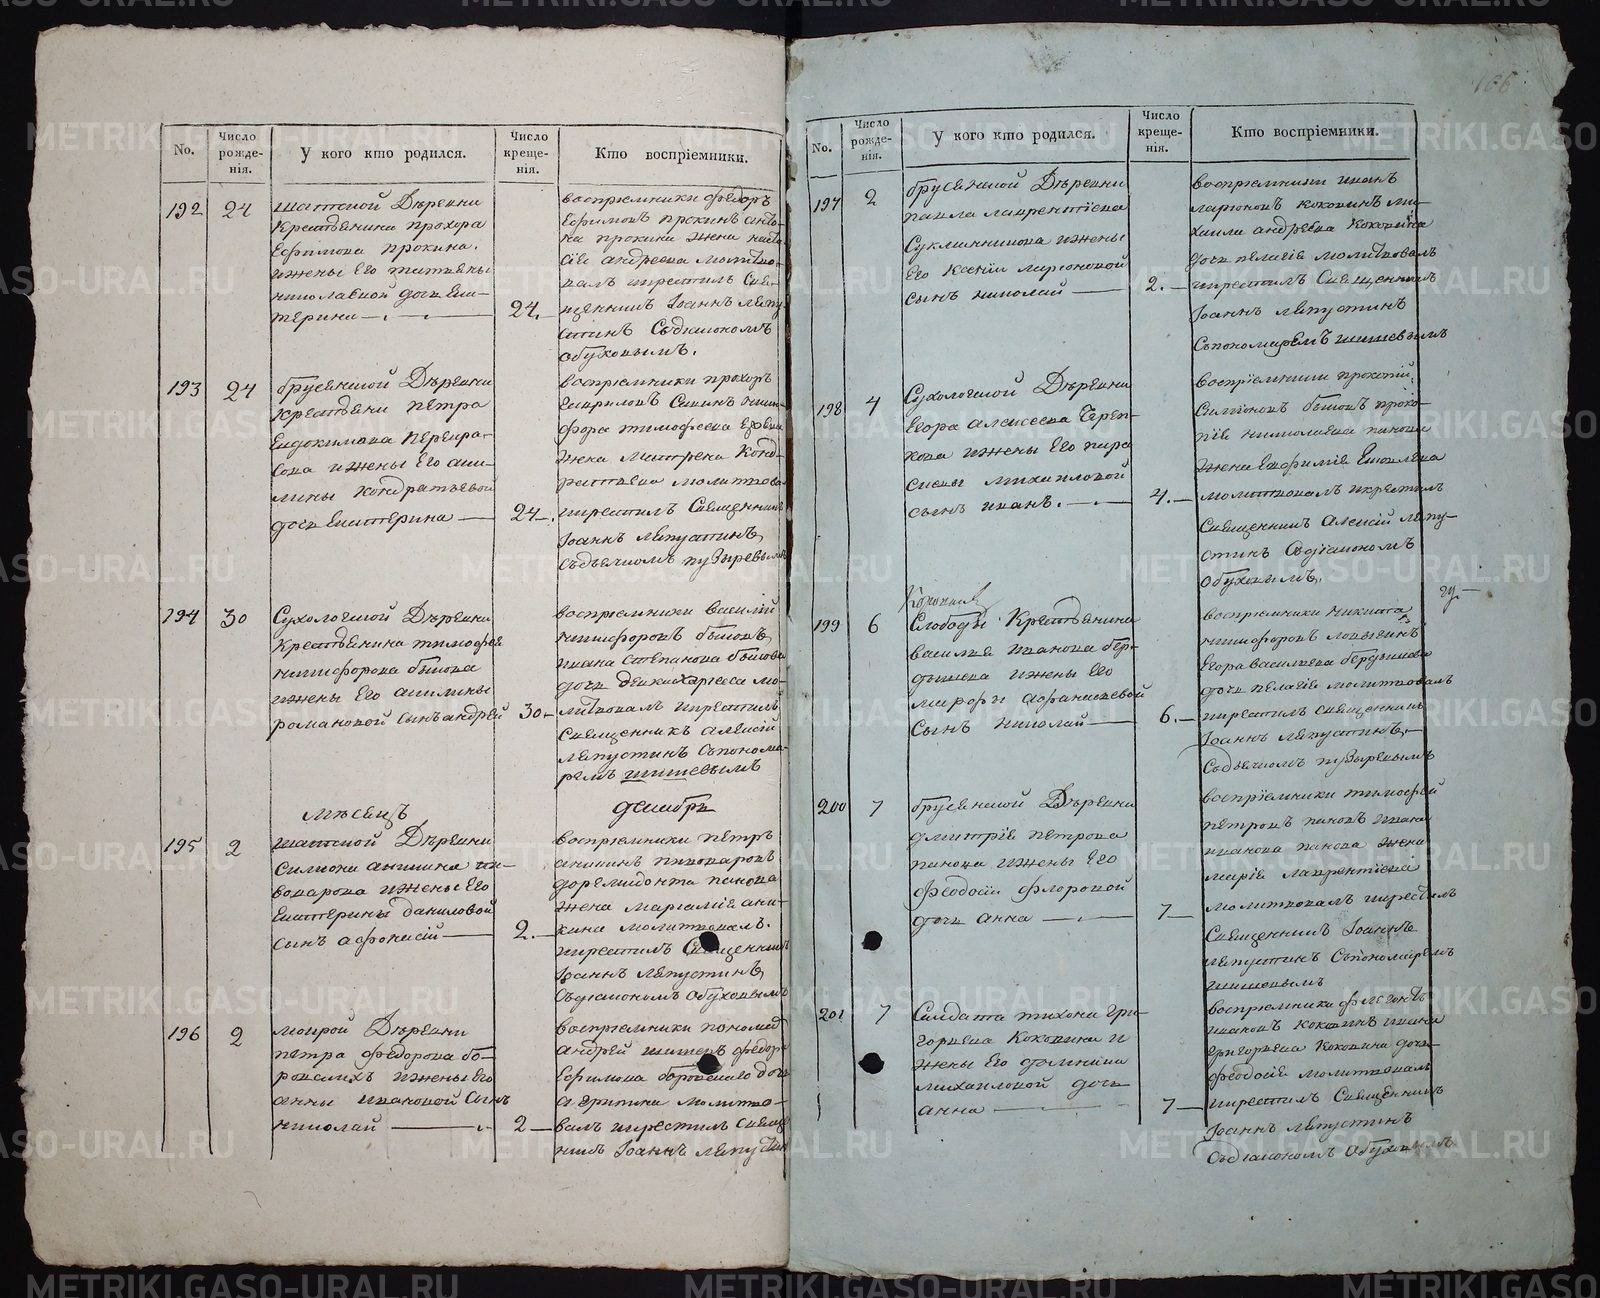 No.
Число рожде-нія.
У кого кто родился.
Число креще-нія.
Кто воспріемники.
192
24
шатской Дѣревни
Крестьянина прохора
Ефимова прокина.
ижены Его татьяны
николаевой дочь Ека-
терина
24.
воспріемники федоръ
Ефимовъ прокинъ
на прокина жена наста-
сіе андреева молитво-
валъ икрестилъ Свя-
щенникъ Іоаннъ Лепу
стинъ Съдіакономъ
обуховымъ.
193
24
брусянской Дѣревни
Крестьяни петра
Евдокимова
ижены Его аку-
лины кондратьевой
дочь Екатерина
24.
воспріемники прохоръ
Гавриловъ
фора тимофеева
жена Матрена Конд-
ратьева молитвова
икрестилъ Священникъ
Іоаннъ Лепустинъ,
Съдьячкомъ пузыревымъ
194
30
Сухоложской Дѣревни
Крестьянина тимофея
никифорова быкова
ижены Его акилины
романовой сынъ андрей
30.
воспріемники василій
никифоровъ быковъ,
ивана степанова быкова
дочь мо-
литвовалъ икрестилъ
Священникъ алексій
лепустинъ Съпонома-
ремъ шишевымъ
мѣсецъ
декабрь
195
2
шатской Дѣревни
Симиона аникина пи-
воварова ижены Его
Екатерины даниловой
сынъ афонасій
2.
воспріемники петръ
аникинъ пивоваровъ
дормидонта панова
жена маріамія ани-
кина молитвовалъ.
икрестилъ Священникъ
Іоаннъ лепустинъ,
Съдіакономъ обуховымъ
196
2
мокрой Дѣревни
петра федорова бо-
ровскихъ ижены Его
анны ивановой Сынъ
николай
2
воспріемники пономар
андрей шишевъ федора
Ефимова боровскаго дочь
агрипина молитво-
валъ икрестилъ Свящ
никъ Іоаннъ лепустин
166
No.
Число рожде-нія.
У кого кто родился.
Число креще-нія.
Кто воспріемники.
197
2
брусянской Дѣревни
павла лаврентіева
Сукманникова ижены
его Ксеніи ларіоновой
сынъ николай
2.
воспріемники иванъ
ларіоновъ коковинъ ми-
хаила андреева Коковина
дочь пелагіе молитвовалъ
икрестилъ Священникъ
Іоаннъ лепустинъ
Съпономаремъ шишевымъ
198
4
Сухоложской Дѣревни
Егора алексеева Череп-
хова ижены Его пара
скевы михаиловой
сынъ иванъ.
4.
воспріемники прокопій
Симіоновъ быковъ проко-
піе николаева панова
жена Евфиміе Еповлева
молитвовалъ икрестилъ
Священникъ алексій лепу-
стинъ Съдіакономъ
обуховымъ.
199
6
Слободы Крестьянина
василія иванова бер-
дышева ижены Его
марфы афанасьевой
Сынъ николай
6.
воспріемники никита
никифоровъ
Егора василіева бердышева
дочь пелагіе молитвовалъ
икрестилъ священникъ
Іоаннъ лепустинъ,
Съдьячкомъ пузыревымъ
200
7
брусянской Дѣревни
дмитріе петрова
панова ижены Его
феодосіи флоровой
дочь анна
7
воспріемники тимофей
петровъ пановъ ивана
иванова панова жена
маріе лаврентіева
молитвовалъ икрестилъ
Священникъ Іоаннъ
лепустинъ Съпономаремъ
шишевымъ
201
7
Салдата тихона гри-
горьева Коковина и
жены Его домнины
михаиловой дочь
анна
7
воспріемники
ивановъ коковинъ ивана
григорьева Коковина дочь
феодосіе молитвовалъ
икрестилъ Священникъ
Іоаннъ лепустинъ
Съдіакономъ обуховымъ